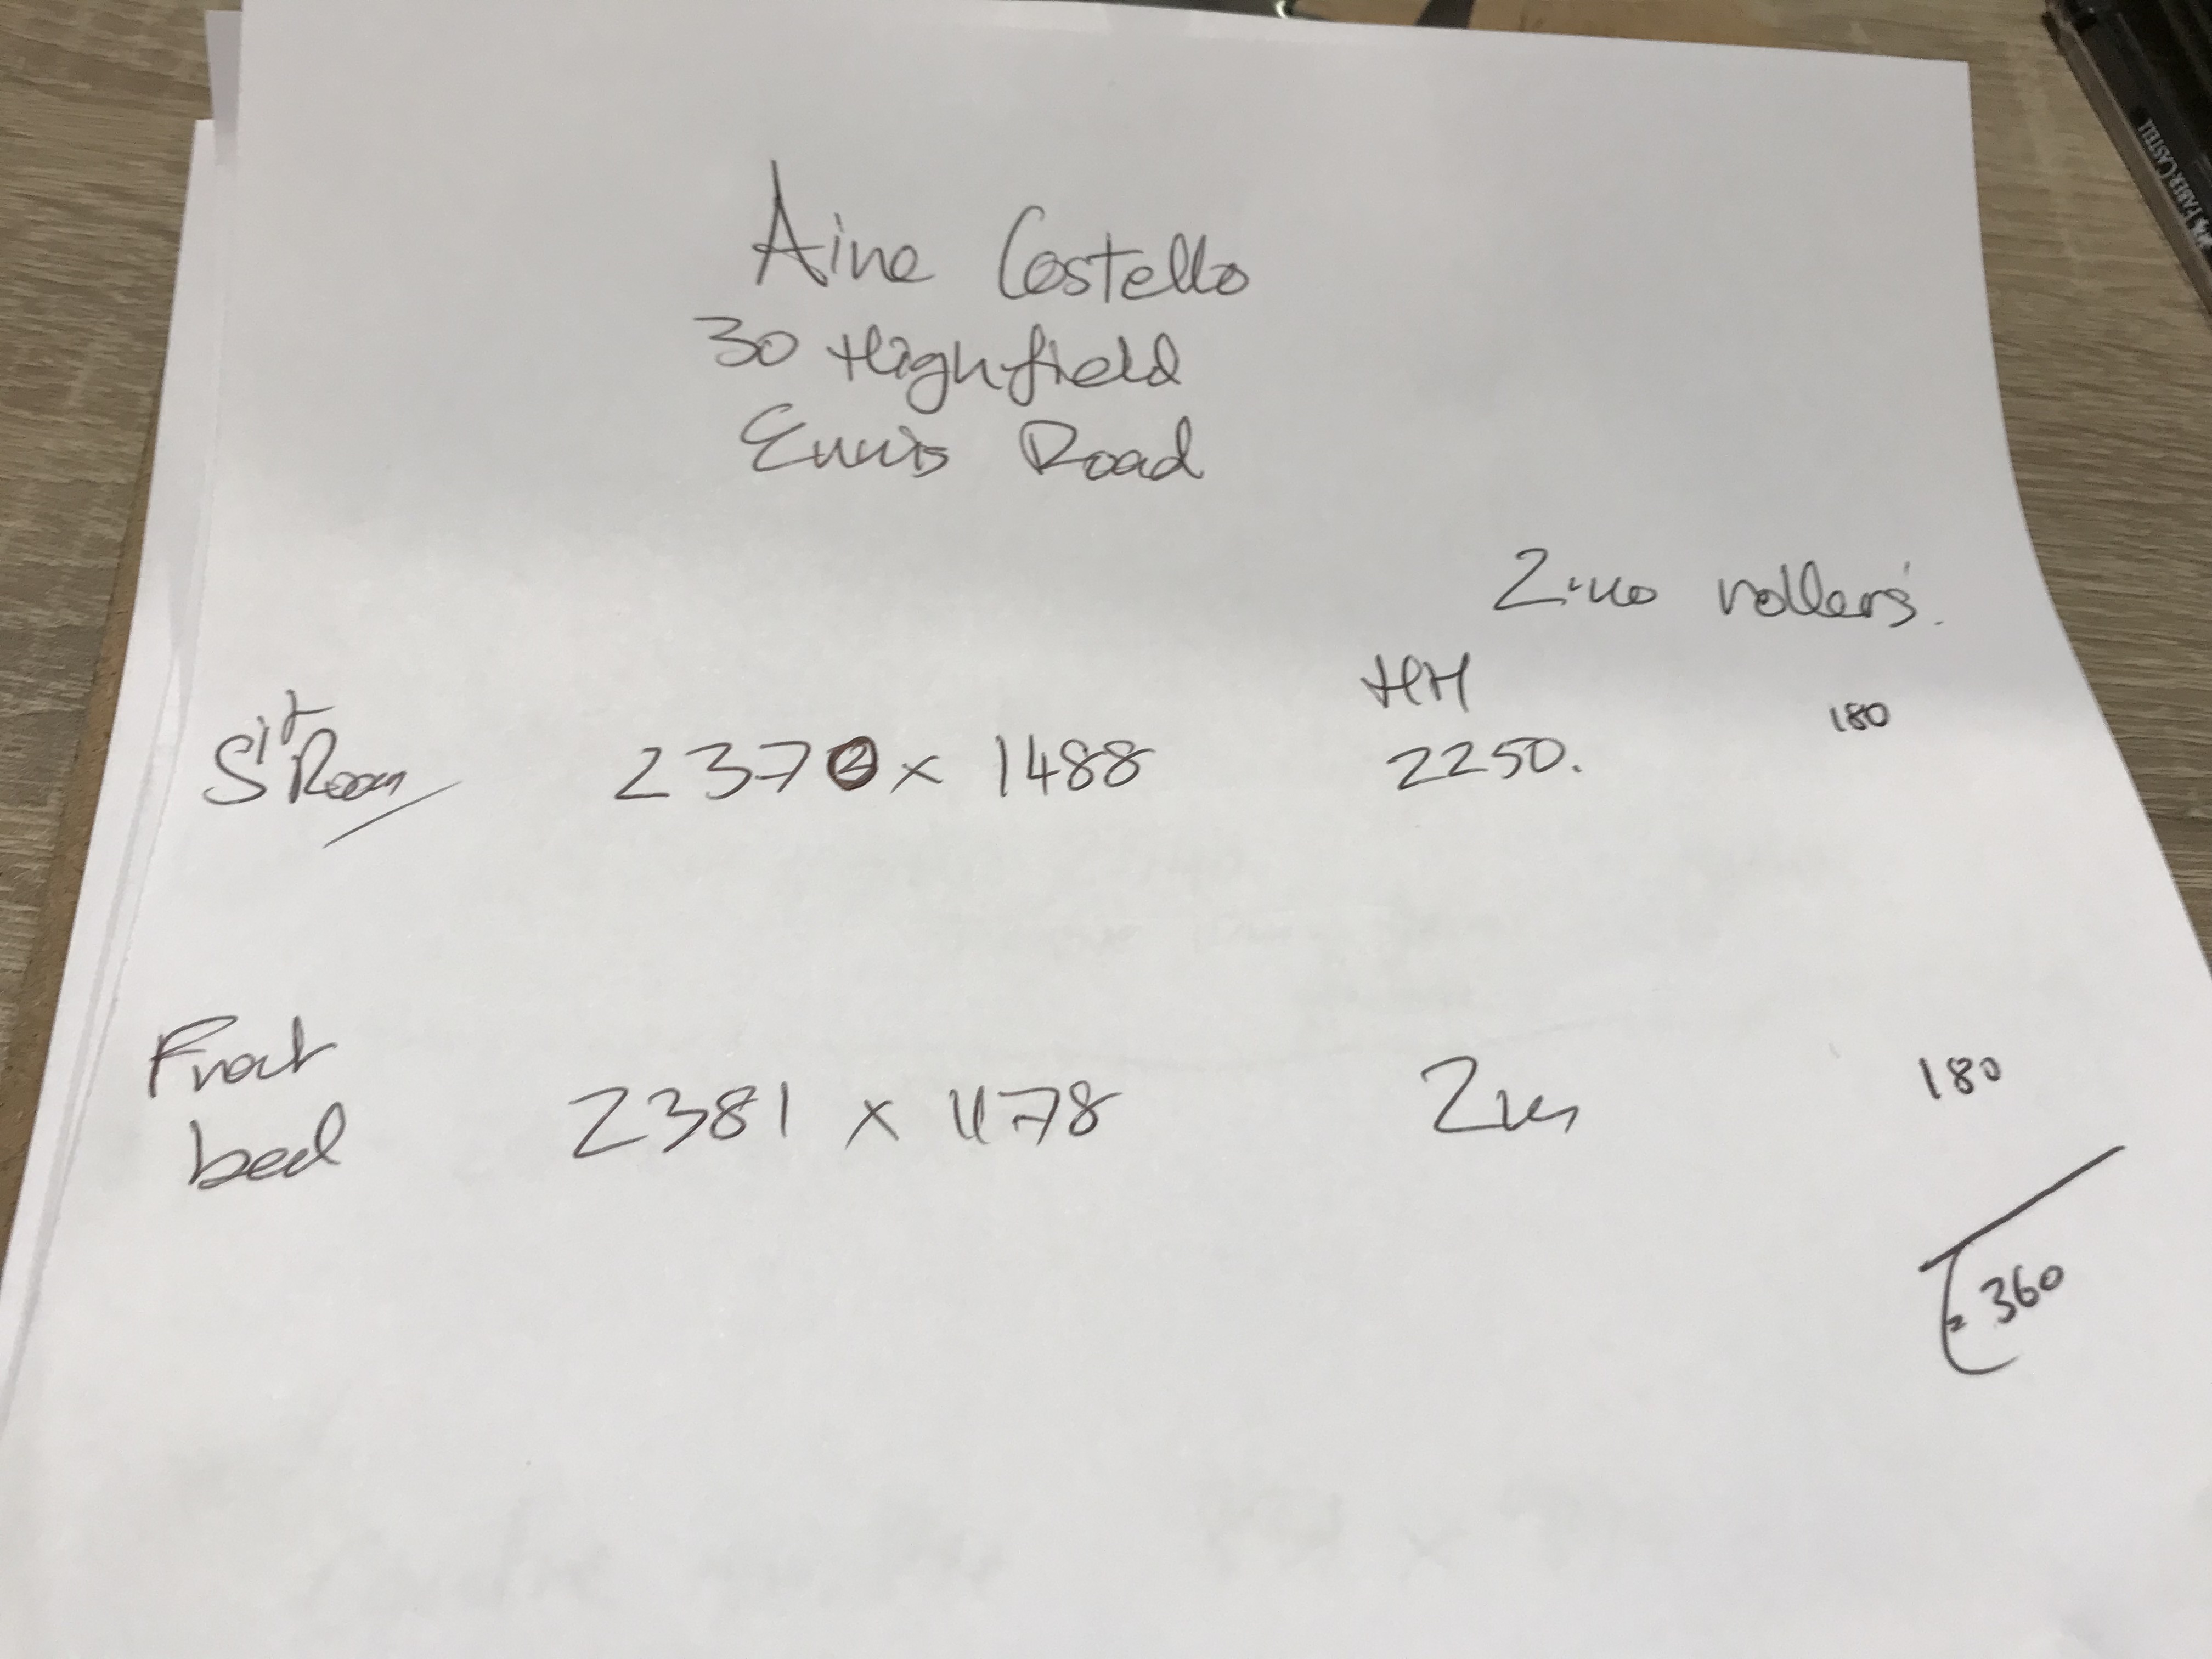 Aine Costello
30 Highfield
Ennis Road
rollers.
HH
Sit Room 2370 x 1488 2250. 180
Front bed 2381 x 1178 180
€ 360
FABER-CASTELL